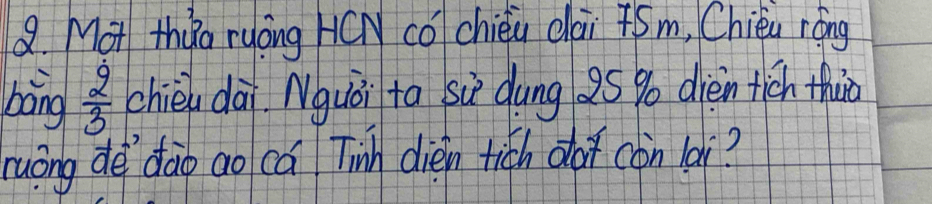 2. Một thửa ruộng HCN có chiều dài 75m, Chiều rộng
bằng 2/3 chiều dài. Người ta sử dụng 25% diện tích thửa
ruộng để đào ao cá. Tính diện tích đất còn lại?